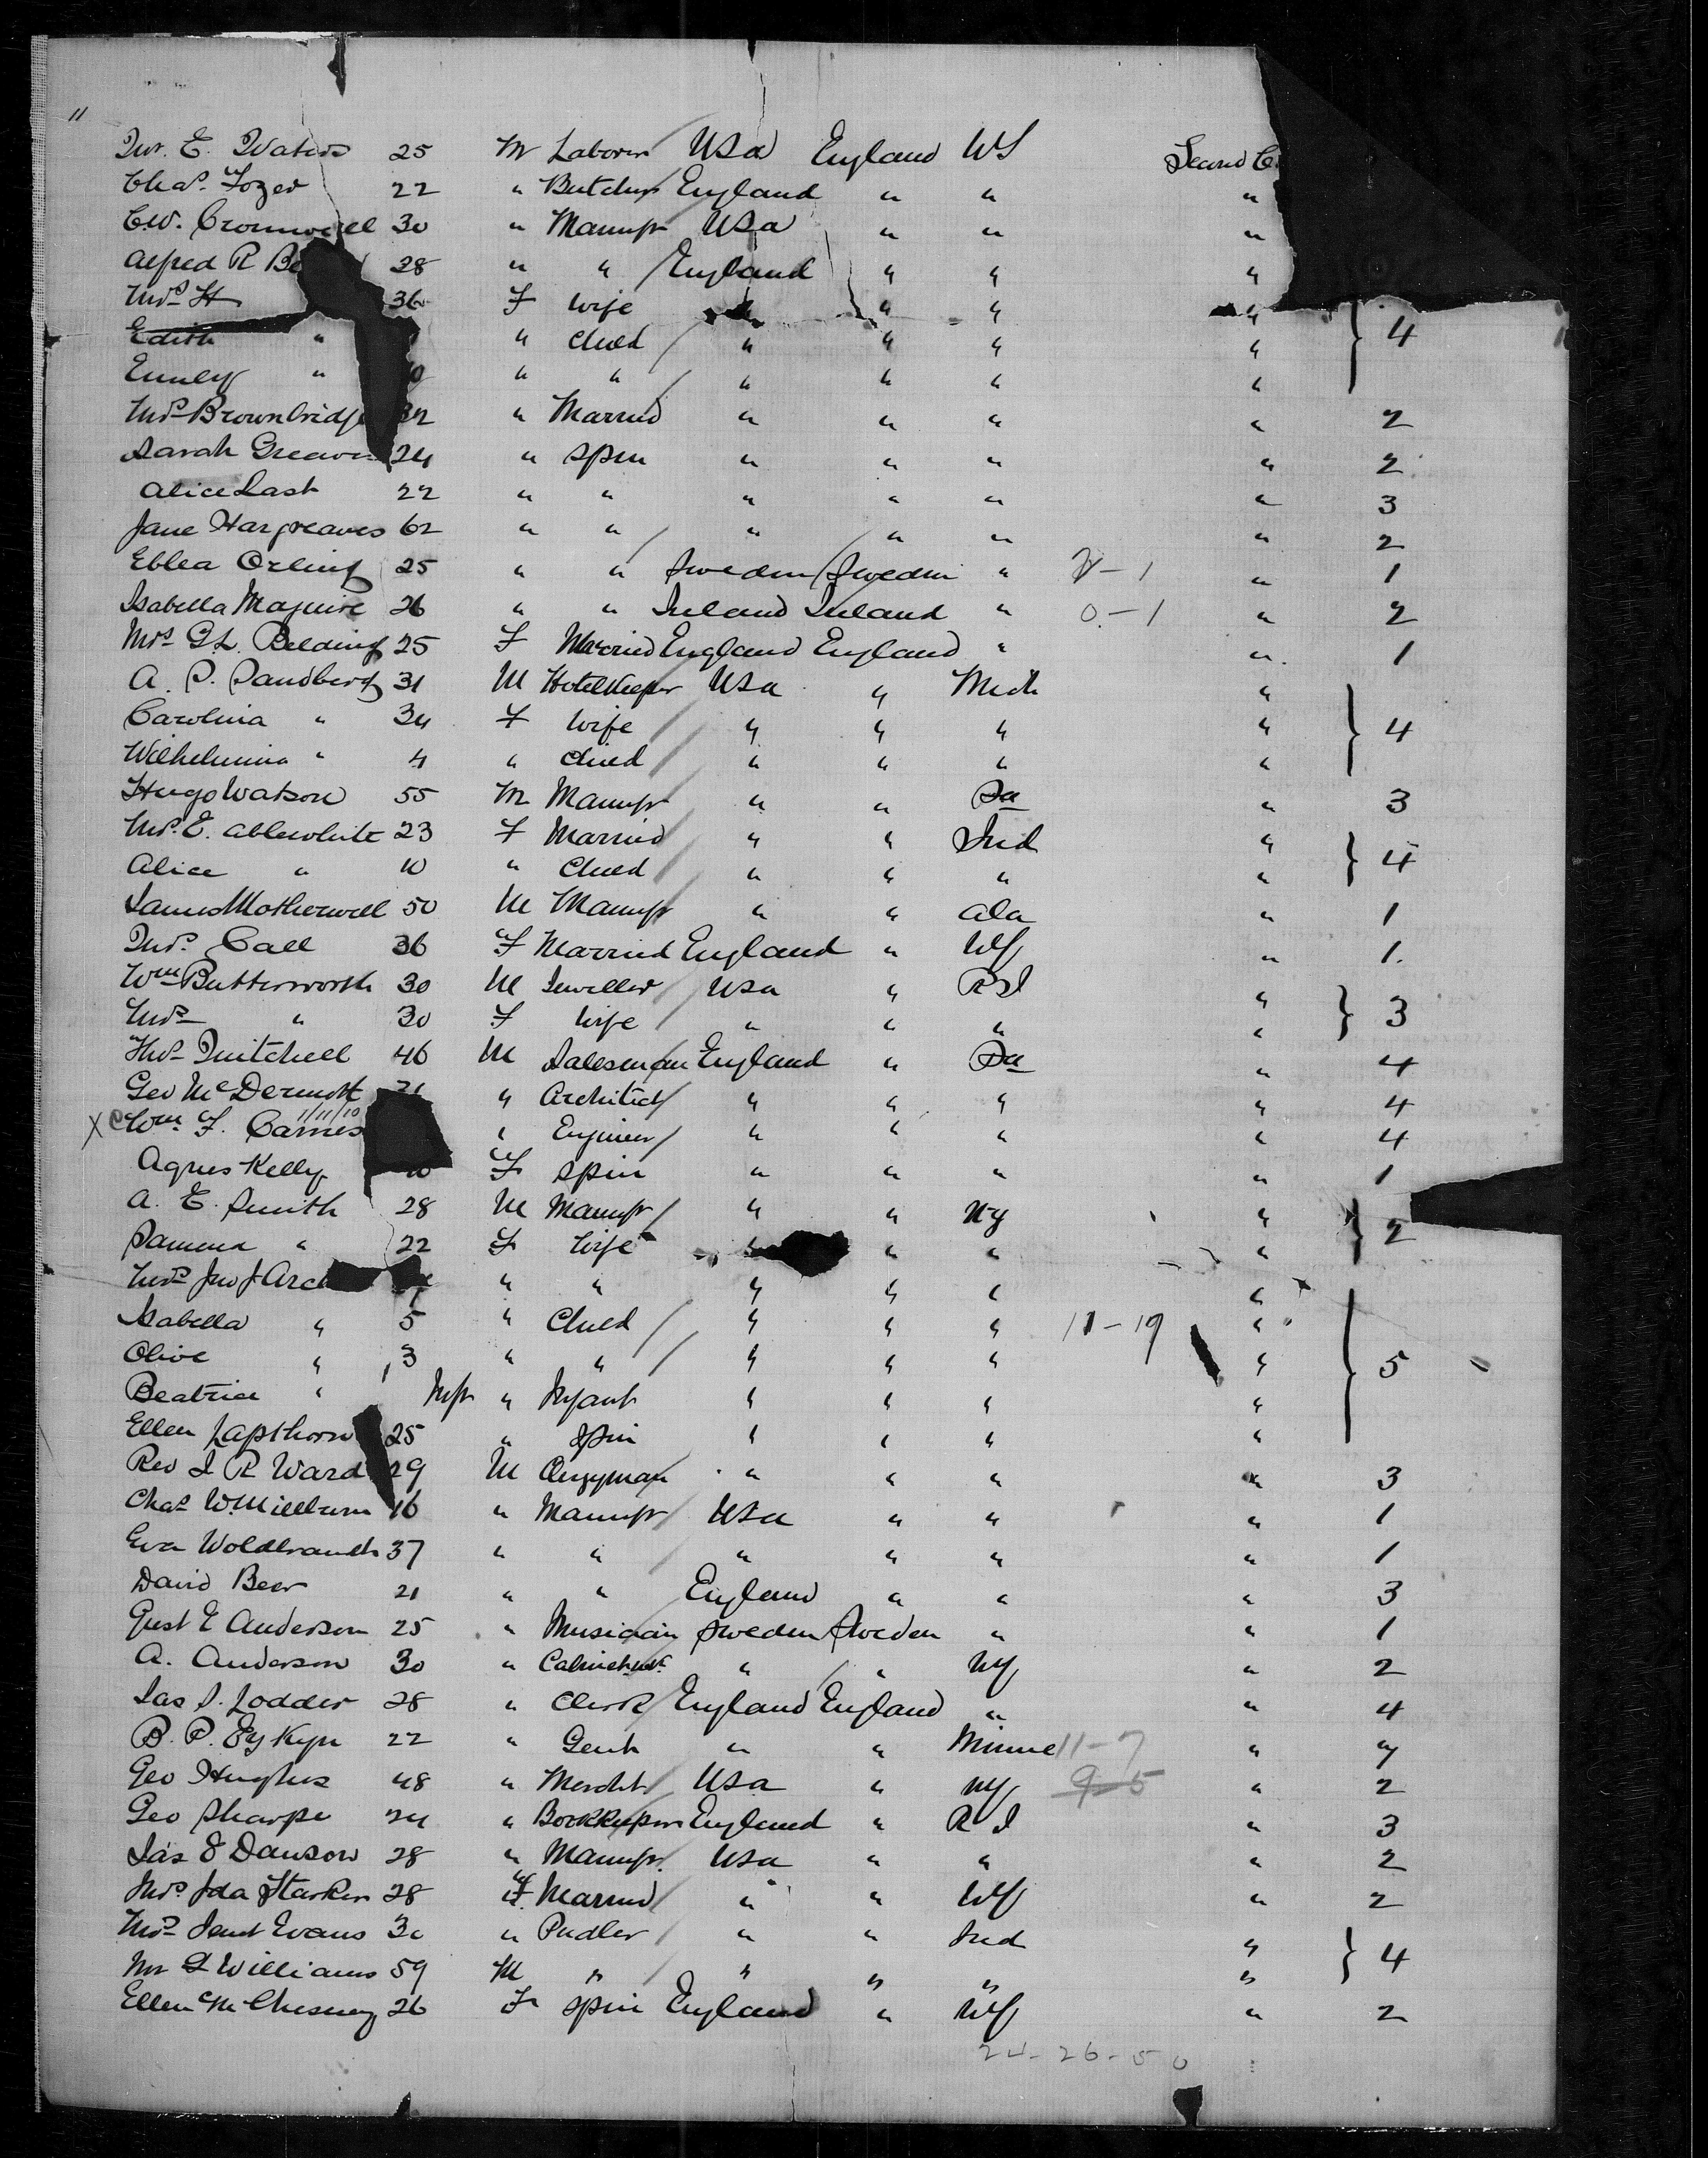 "
E. Waters 25 M Laborer USA England NY Second C
Chas. Tozer 22 " Butcher England " " "
C.W. Cromwell 30 " Manufr USA " " "
Alfred R 28 " " England " " "
Mrs H 36 F Wife " " "
Edith " " Child " " " " } 4
Emily " " " " " " "
Mrs Brownbridge 32 " Married " " " " 2
Sarah Greaves 24 " Spin " " " " 2
Alice Last 22 " " " " " " 3
Jane Hargreaves 62 " " " " " " 2
Ebba Orling 25 " " Sweden Sweden " - 1 " 1
Isabella Maguire 26 " " Ireland Ireland " 0 - 1 " 2
Mrs G.L. Belding 25 F Married England England " " 1
A. P. Sandberg 31 M Hotelkeeper USA " Mich "
Carolina " 34 F Wife " " " " } 4
Wilhelmina " 4 " Child " " " "
Hugo Watson 55 M Manufr " " Pa " 3
Mrs. E. Ablewhite 23 F Married " " Ind " } 4
Alice " 10 " Child " " " "
James Motherwell 50 M Manufr " " Ala " 1
Mrs. Call 36 F Married England " NY " 1.
Wm Butterworth 30 M Jeweller USA " R I " } 3
Mrs " 30 F Wife " " " "
Thos Mitchell 46 M Salesman England " Pa " 4
Geo McDermott " Architect " " " " 4
1/11/10
X C Wm. F. Carnes " Engineer " " " " 4
Agnes Kelly F Spin " " " " 1
A. E. Smith 28 M Manufr " " NY " } 2
" 22 F Wife " " "
Mrs Jno J Arc " " " " " "
Isabella " 5 " Child " " " 11 - 19 "
Olive " 3 " " " " " " } 5
Beatrice " Inft " Infant " " " "
Ellen Lapthorn 25 " Spin " " " "
Rev J R Ward 29 M Clergyman " " " " 3
Chas W. Millburn 16 " Manufr USA " " " 1
Eva Woldbrandt 37 " " " " " " 1
David Beer 21 " " England " " " 3
Gust E Anderson 25 " Musician Sweden Sweden " " 1
A. Anderson 30 " Cabinet " " NY " 2
Jas S. Lodder 28 " Clerk England England " " 4
B. P. Eykyn 22 " Gent " " Minne 11 - 7 " 7
Geo Hughes 48 " Mercht USA " NY 9-5 " 2
Geo Sharpe 24 " Bookkeeper England " R I " 3
Jas E Dawson 28 " Manufr. USA " " " 2
Mrs Ida Starker 28 F. Married " " NY " 2
Mrs Janet Evans 30 " Pudler " " Ind " } 4
Mr L Williams 59 M " " " " "
Ellen McChesney 26 F Spin England " NY " 2
24 - 26 - 50